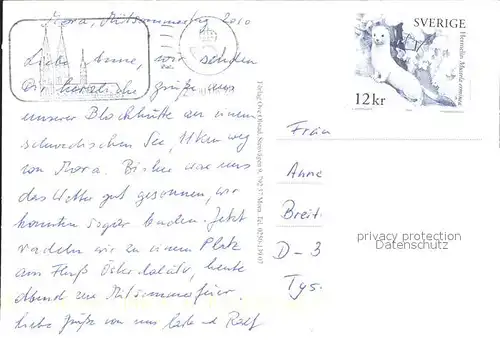 Mora, Mittsommertag 2010
Liebe Anne, wir senden
Dir herzliche Grüße aus
unserer Blockhütte an einem
schwedischen See, 11km weg
von Mora. Bisher war uns
das Wetter gut gesonnen, wir
konnten sogar baden. Jetzt
radeln wir zu einem Platz
am Fluß Österdalälv, heute
Abend zur Mittsommerfeier.
Liebe Grüße von uns und Ralf
SVERIGE
Hermelin Mustela erminea
12kr
792 37 Mora. Tel. 0250-139 07
Frau
Anne
Breit-
D-3
Tys.
privacy protection
Datenschutz